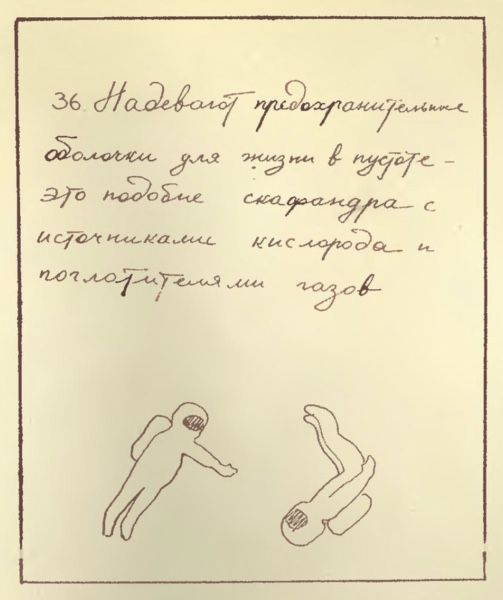 36 Надевают предохранительные
оболочки для жизни в пустоте –
это подобие скафандра с
источниками кислорода и
поглотителями газов